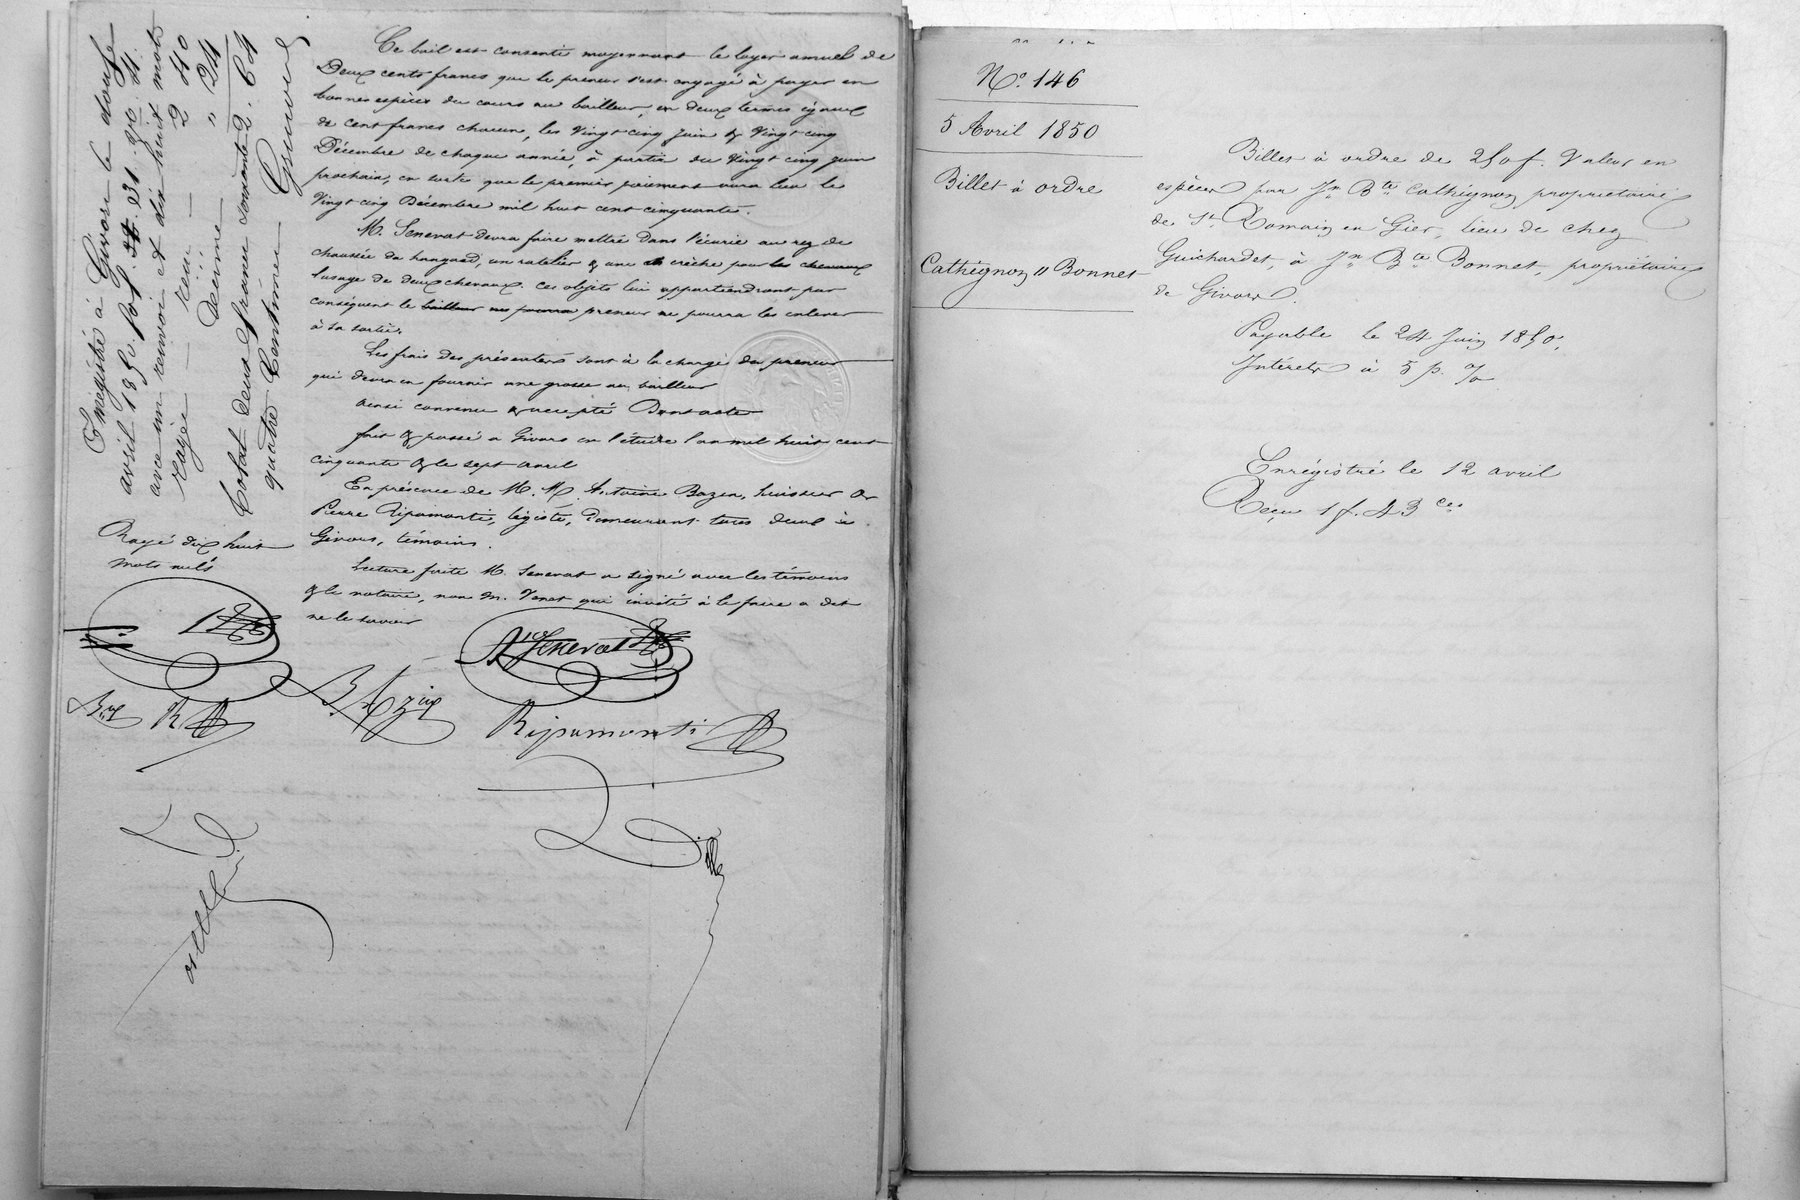 Ce bail est consenti moyennant le loyer annuel de
Deux cents francs que le preneur s'est engagé à payer en
bonnes espèces du cours au bailleur, en deux termes égaux
de cent francs chacun, les Vingt cinq Juin & Vingt cinq
Décembre de chaque année, à partir du Vingt cinq juin
prochain, en sorte que le premier paiement aura lieu le
Vingt cinq Décembre mil huit cent cinquante.
M. Senevat devra faire mettre dans l'écurie au rez de
chaussée du hangard, un ratelier & une crèche pour les chevaux
l'usage de deux chevaux. ces objets lui appartiendront par
conséquent le bailleur ne pourra preneur ne pourra les enlever
à sa sortie.
Les frais des présentes sont à la charge du preneur
qui devra en fournir une grosse au bailleur
ainsi convenu & accepté Dont acte
fait & passé a Givors en l'étude l'an mil huit cent
cinquante & le sept avril
En présence de M. M. Antoine Bazin, huissier &
Pierre Ripamonti, légiste, demeurant tous deux à
Givors, témoins.
Lecture faite M. Senevat a signé avec les témoins
& le notaire, non M. Venet qui invité à le faire a dit
ne le savoir
Enregistré à Givors le douze
avril 1850. fol. 34. 231. v° c. 4.
avec un renvoi et dix huit mots
rayés — reçu — 2 40
Décime — " 24
Total deux francs soixante 2. 64
quatre Centimes
Rayé dix huit
mots nuls
Senevat
B. Azin
Ripamonti
N°. 146
5 Avril 1850
Billet à ordre
Cathégnon // Bonnet
Billet à ordre de 250 f. Valeur en
espèces par Jn Bte Cathégnon propriétaire
de St Romain en Gier, lieu de chez
Guichardet, à Jn Bte Bonnet, propriétaire
de Givors.
Payable le 24 Juin 1850,
Intérêts à 5 p. %
Enrégistré le 12 avril
Reçu 1 f. 43 ces